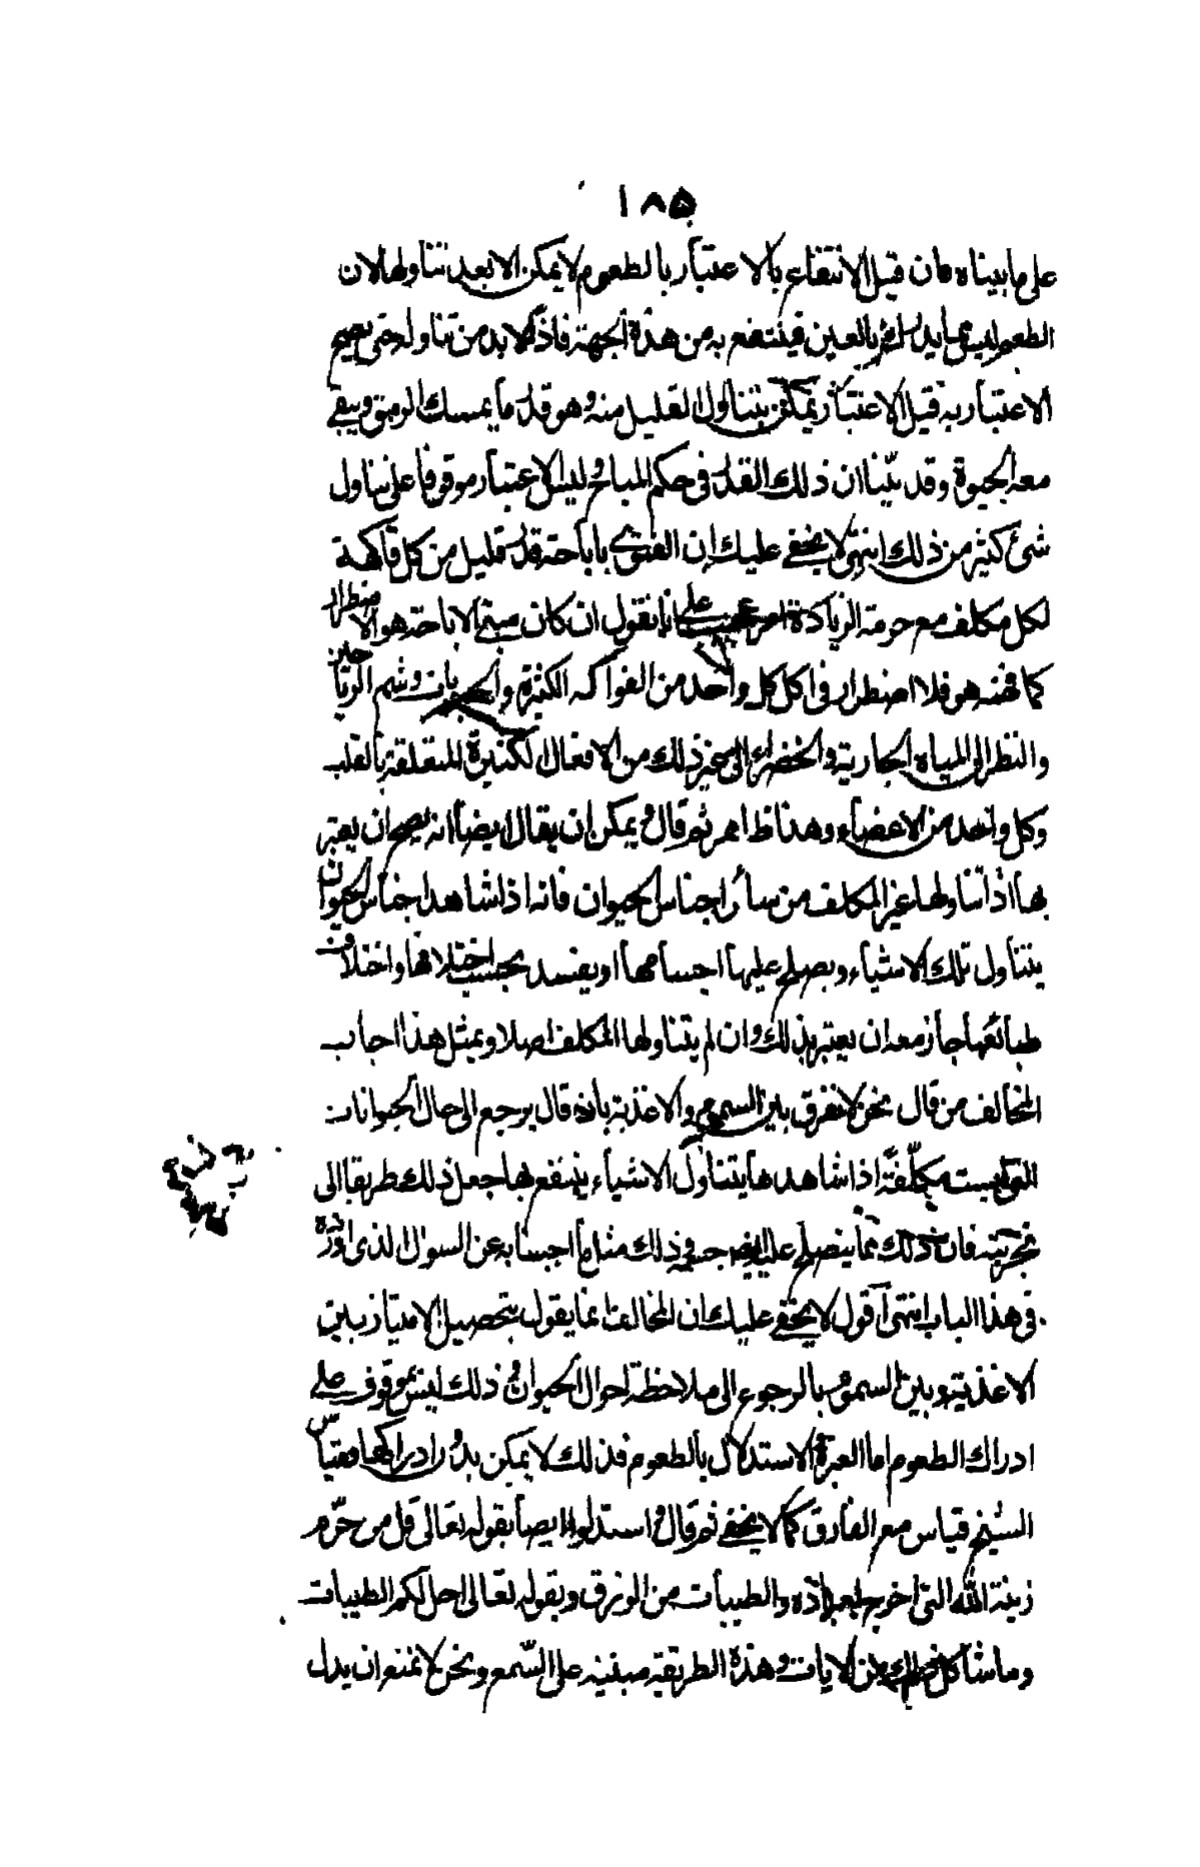 ١٨٥
على ما بيناه فان قيل الانتفاع بالاعتبار بالطعوم لا يمكن الا بعد تناولها لان
الطعم ليس مما يدرك بالعين فينتفع به من هذه الجهة فاذا لا بد من تناوله حتى يصح
الاعتبار به قيل الاعتبار يمكن بتناول القليل منه وهو قدر ما يمسك الرمق ويبقى
معه الحيوة وقد بيّنا ان ذلك القدر في حكم المباح وليس الاعتبار موقوفا على تناول
شئ كثير من ذلك انتهى لا يخفى عليك ان الفتوى باباحة قدر قليل من كل فاكهة
لكل مكلف مع حرمة الزيادة امر عجيب على انا نقول ان كان مبنى الاباحة هو الاضطرار
كما فهمه هو فلا اضطرار في اكل كل واحد من الفواكه الكثيرة و وشم الرياحين
والنظر الى المياه الجارية والخضراء الى غير ذلك من الافعال الكثيرة المتعلقة بالقلب
وكل واحد من الاعضاء وهذا ظاهر ثم قال ويمكن ان يقال ايضا انه يصح ان يعتبر
بها اذا تناولها غير المكلف من سائر اجناس الحيوان فانه اذا شاهد اجناس الحيوان
يتناول تلك الاشياء ويصلح عليها اجسامها او يفسد بحسب اختلافها واختلاف
طبائعها جاز معه ان يعتبر بذلك وان لم يتناولها المكلف اصلا وبمثل هذا اجاب
المخالف من قال نحن لا نفرق بين السموم والاغذية بان قال يرجع الى حال الحيوانات
التي ليست مكلّفة اذا شاهدها يتناول الاشياء ينتفع بها جعل ذلك طريقا الى
تجربته فان ذلك مما ينصلح عليه في ذلك مثل ما اجبنا به عن السوال الذي اورده
في هذا الباب انتهى اقول لا يخفى عليك ان المخالف انما يقول بتحصيل الامتياز بين
الاغذية وبين السموم بالرجوع الى ملاحظة احوال الحيوان و ذلك ليس بموقوف على
ادراك الطعوم اما العبرة والاستدلال بالطعوم فذلك لا يمكن بدون ادراكها فقياس
الشيخ قياس مع الفارق كما لا يخفى ثم قال واستدلوا ايضا بقوله تعالى قل من حرّم
زينة الله التي اخرج لعباده والطيبات من الرزق وبقوله تعالى احل لكم الطيبات
وما شاكل ذلك من الايات وهذه الطريقة مبنية على السّمع ونحن لا نمنع ان يدل